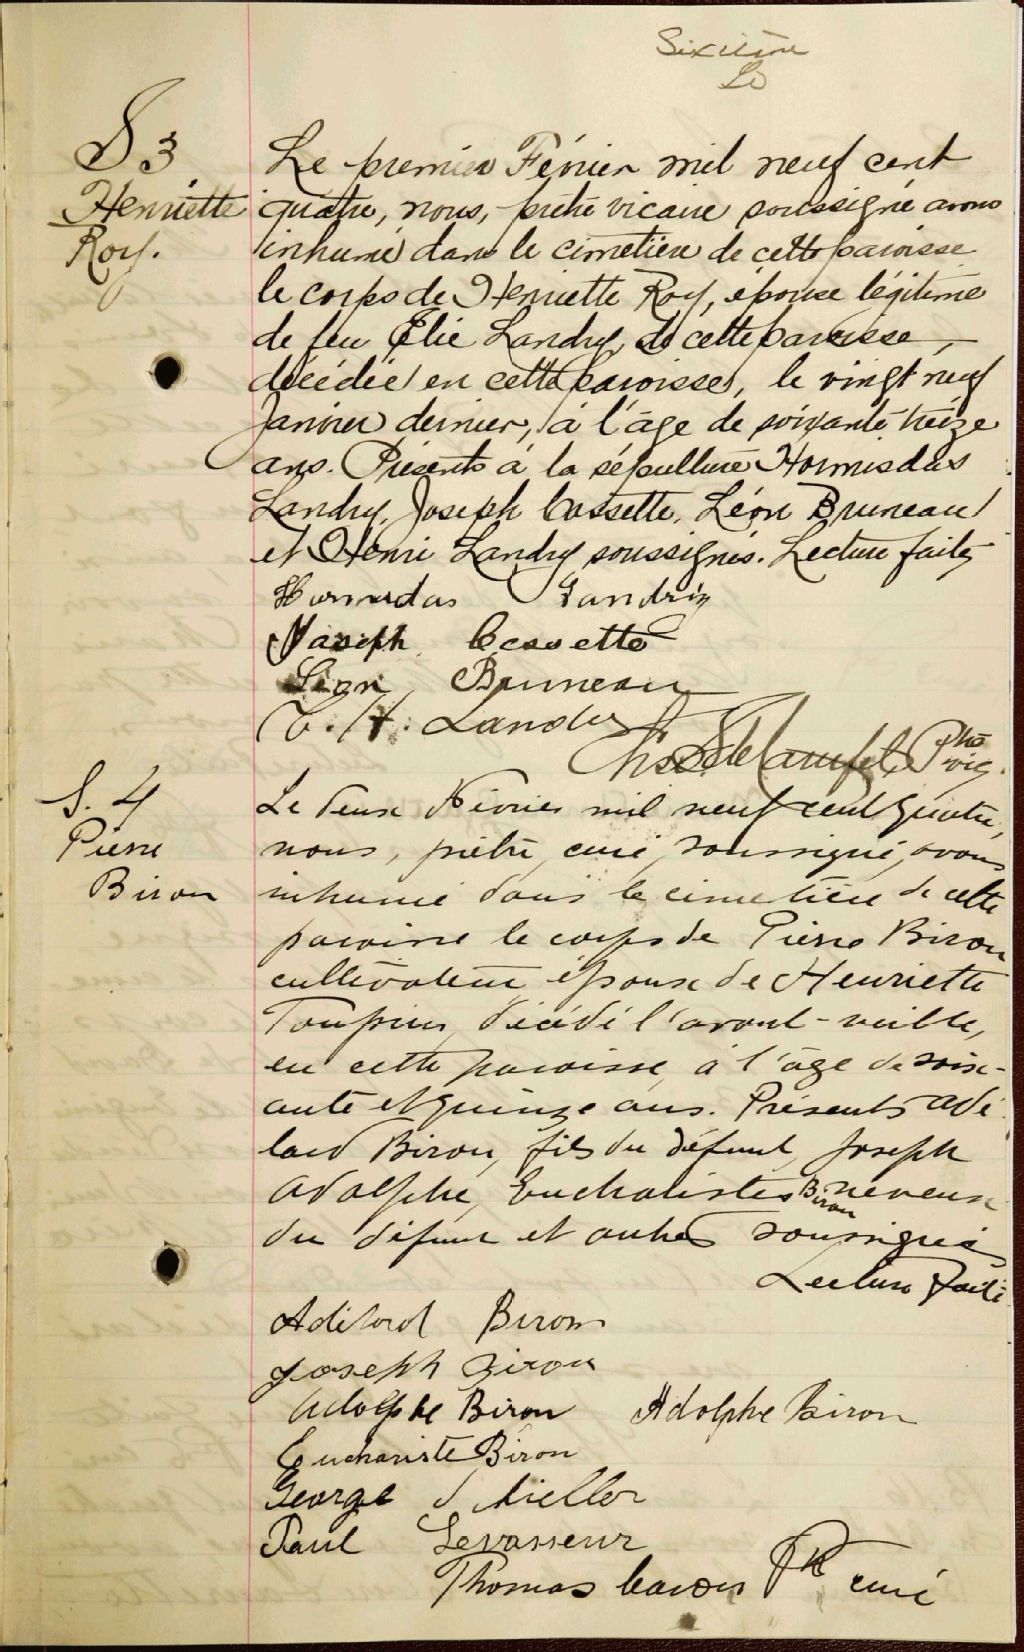 Sixième
S 3
Henriette
Roy.
Le premier Février mil neuf cent
quatre, nous, prêtre vicaire soussigné avons
inhumé dans le cimetière de cette paroisse
le corps de Henriette Roy, épouse légitime
de feu Élie Landry, de cette paroisse,
décédée en cette paroisse, le vingt neuf
Janvier dernier, à l'âge de soixante treize
ans. Présents à la sépulture Hormisdas
Landry, Joseph Cossette, Léon Bruneau
et Henri Landry soussignés. Lecture faite
Hormisdas Landry
Joseph Cossette
Léon Bruneau
H. Landry
Ptre vic.
S. 4
Pierre
Biron
Le deux Février mil neuf cent quatre,
nous, prêtre, curé, soussigné, avons
inhumé dans le cimetière de cette
paroisse le corps de Pierre Biron
cultivateur époux de Henriette
Toupin, décédé l'avant-veille,
en cette paroisse, à l'âge de soix-
ante et quinze ans. Présents Adé
lard Biron, fils du défunt, Joseph
Adolphe, Euchariste Biron neveux
du défunt et autres soussignés
Lecture faite
Adélard Biron
Joseph Biron
Adolphe Biron Adolphe Biron
Euchariste Biron
George
Paul Levasseur
Thomas Caron Ptre curé